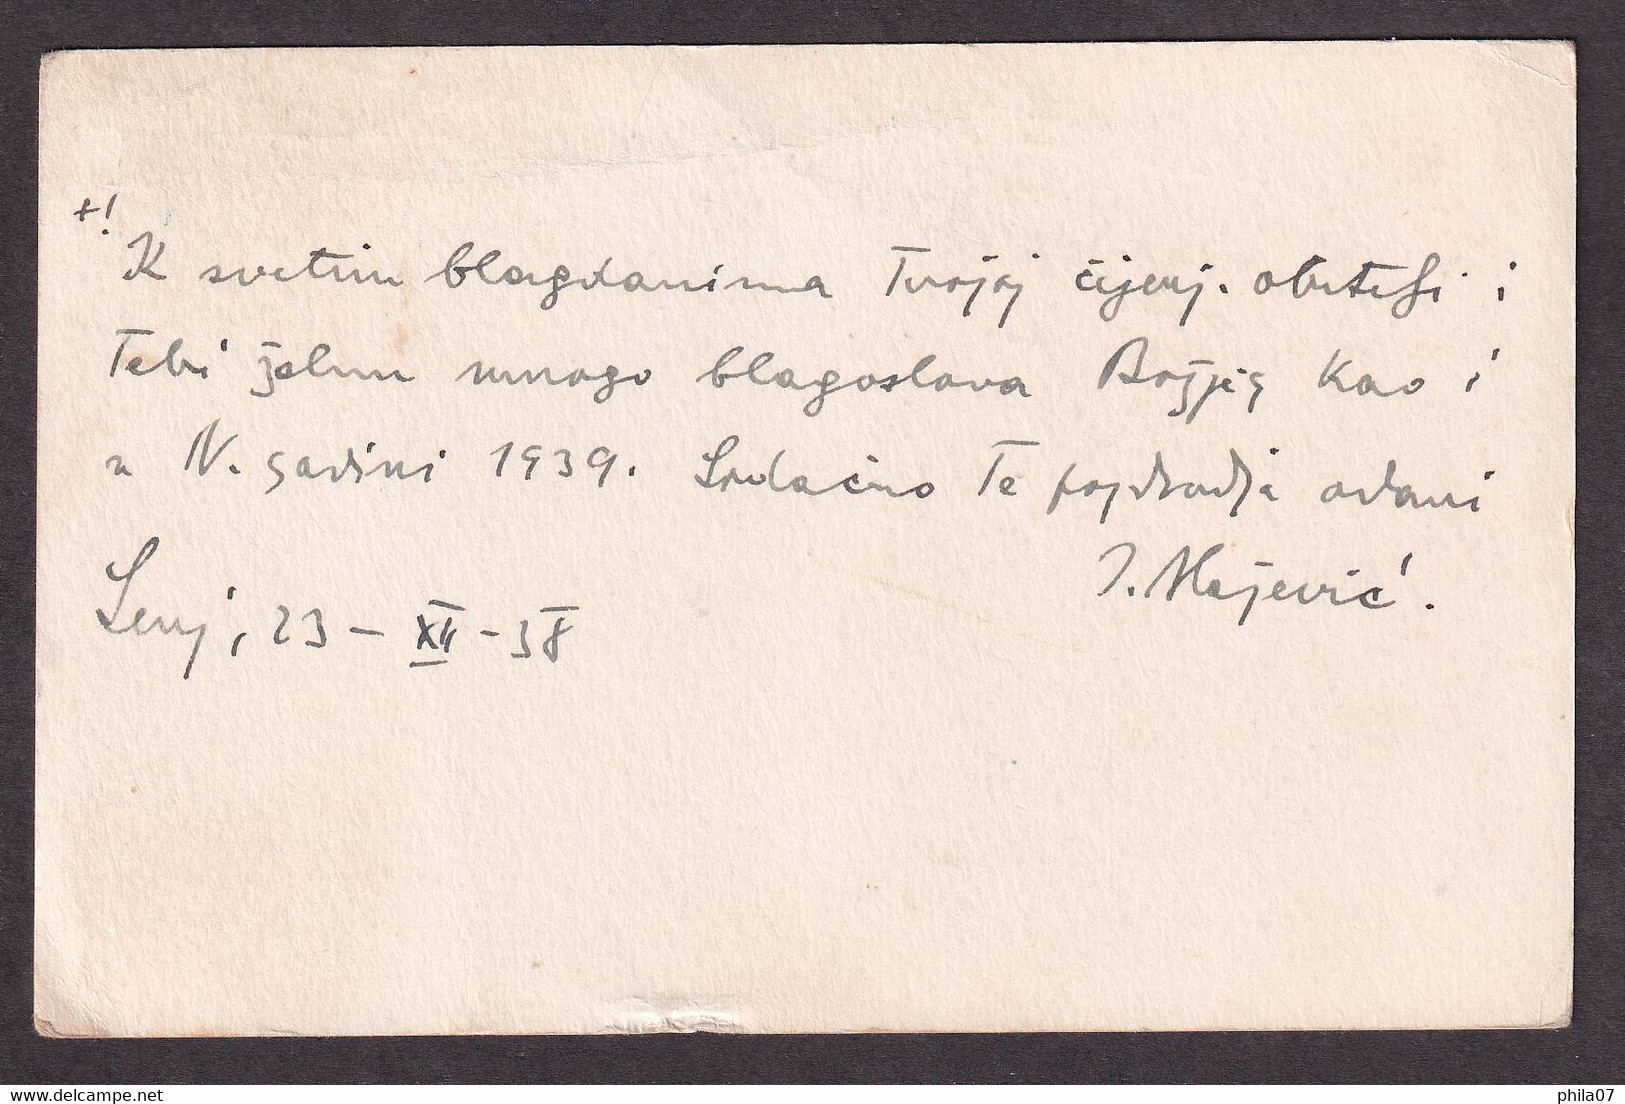 +!
K svetim blagdanima Tvojoj cijenj. obitelji i
Tebi želim mnogo blagoslova Božjeg kao i
u N. godini 1939. Srdačno Te pozdravlja odani
Senj, 23 – XII - 38
phila07